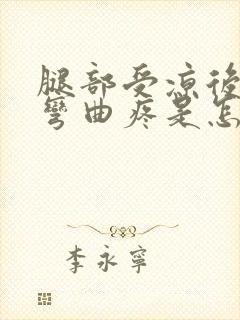 腿部受凉後
彎曲疼是怎
李永寧